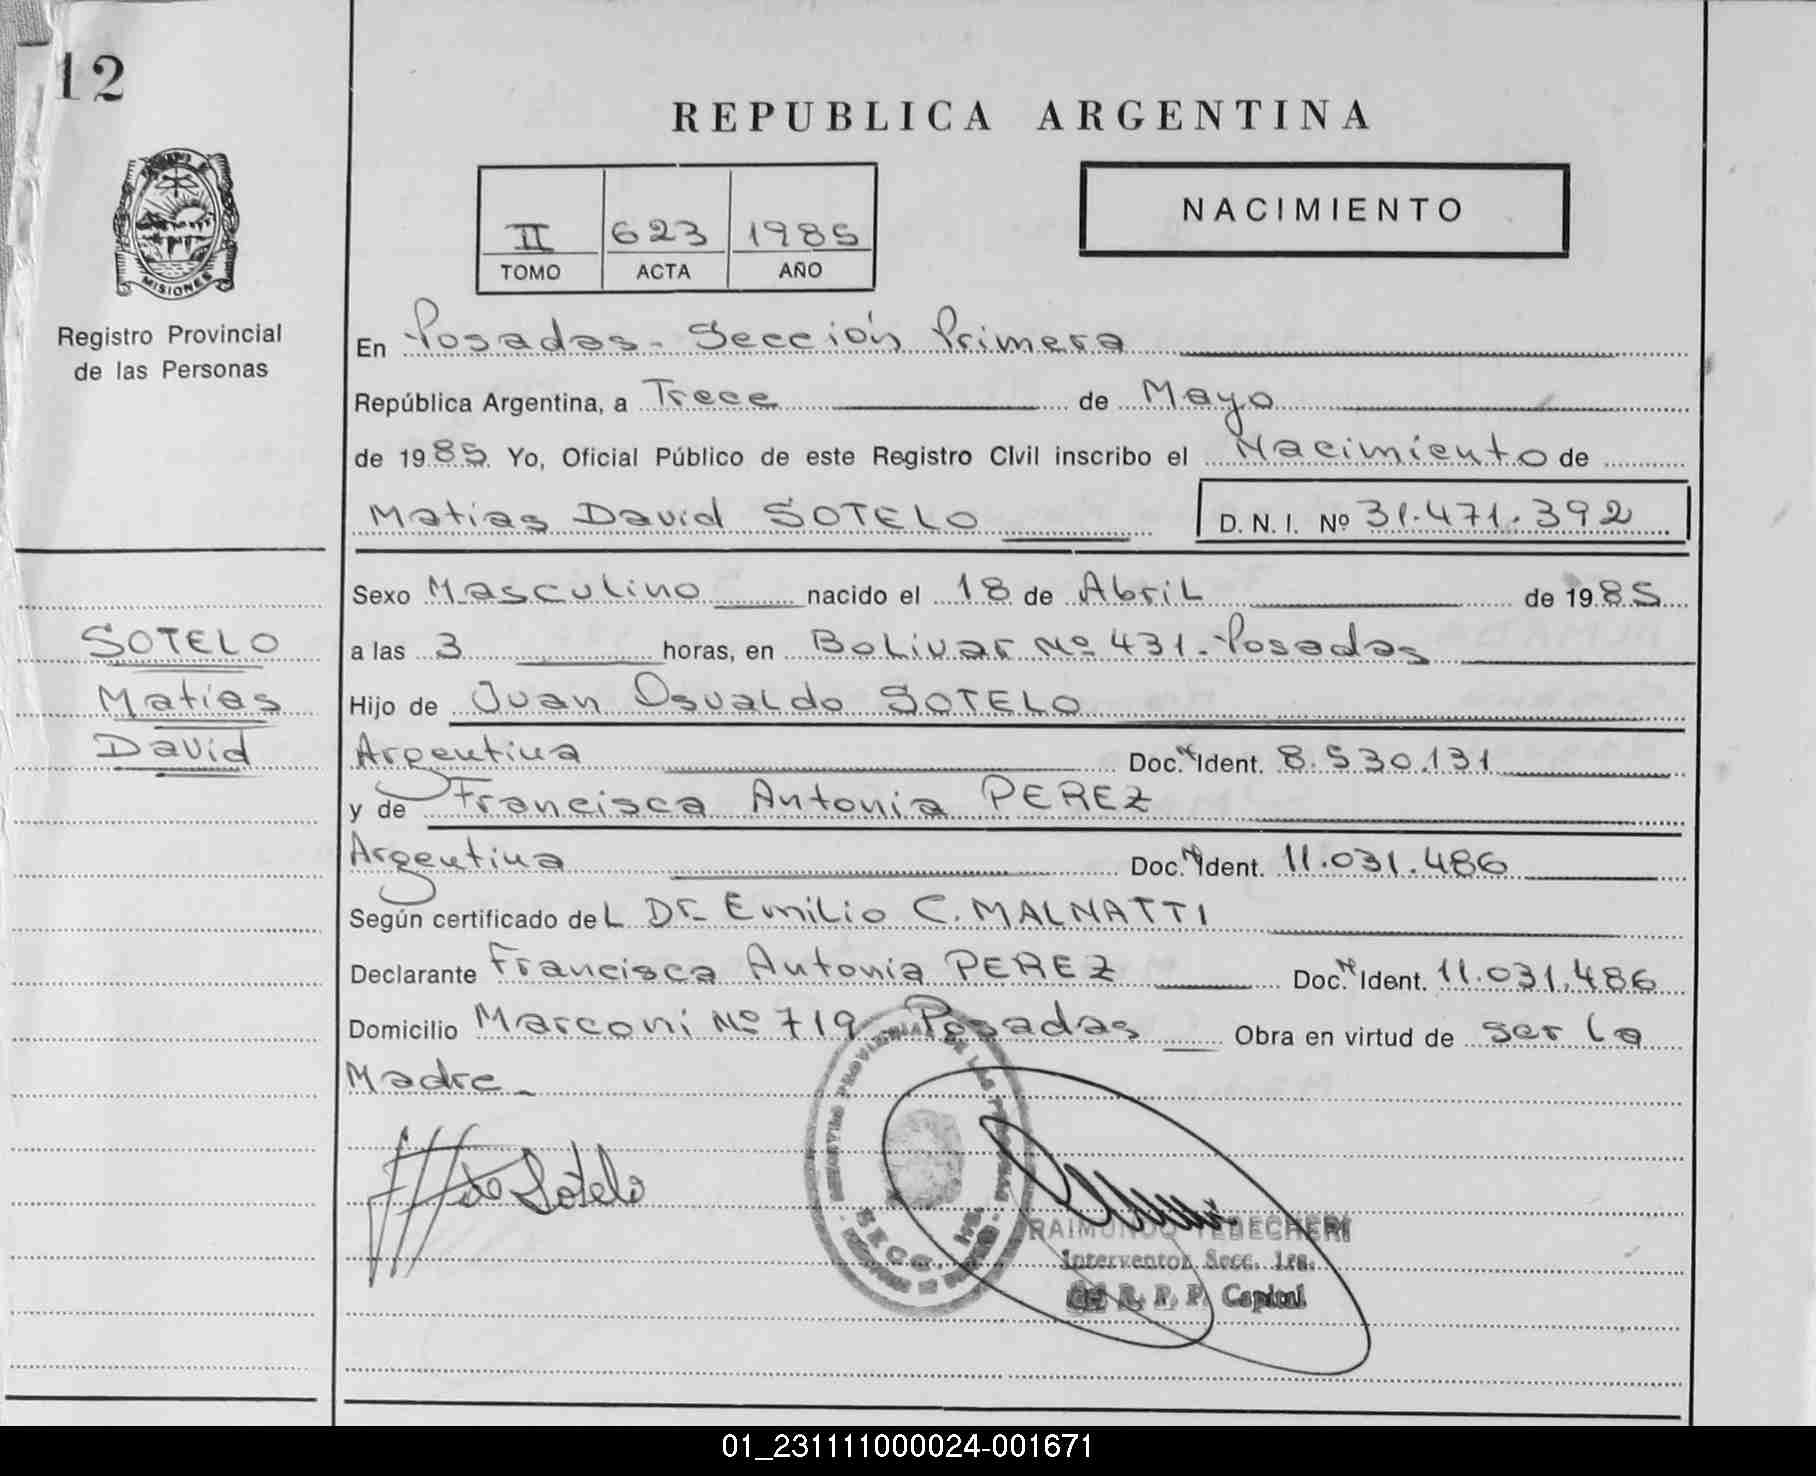 12
REPUBLICA ARGENTINA
NACIMIENTO
II 623 1985
TOMO ACTA AÑO
MISIONES
Registro Provincial
de las Personas
En Posadas - Sección Primera
República Argentina, a Trece de Mayo
de 1985. Yo, Oficial Público de este Registro CIvil inscribo el Nacimiento de
Matias David SOTELO D. N. I. Nº 31.471.392
Sexo Masculino nacido el 18 de Abril de 1985
SOTELO
Matias
David
a las 3 horas, en Bolivar Nº 431 - Posadas
Hijo de Juan Osvaldo SOTELO
Argentina Doc. N Ident. 8.530.131
y de Francisca Antonia PEREZ
Argentina Doc. N Ident. 11.031.486
Según certificado del Dr. Emilio C. MALNATTI
Declarante Francisca Antonia PEREZ Doc. N Ident. 11.031.486
Domicilio Marconi Nº 719 Posadas Obra en virtud de ser la
Madre -
de Sotelo
SECC. 1ra.
RAIMUNDO TEDECHERI
Interventor Secc. 1ra.
R. P. P. Capital
01_231111000024-001671